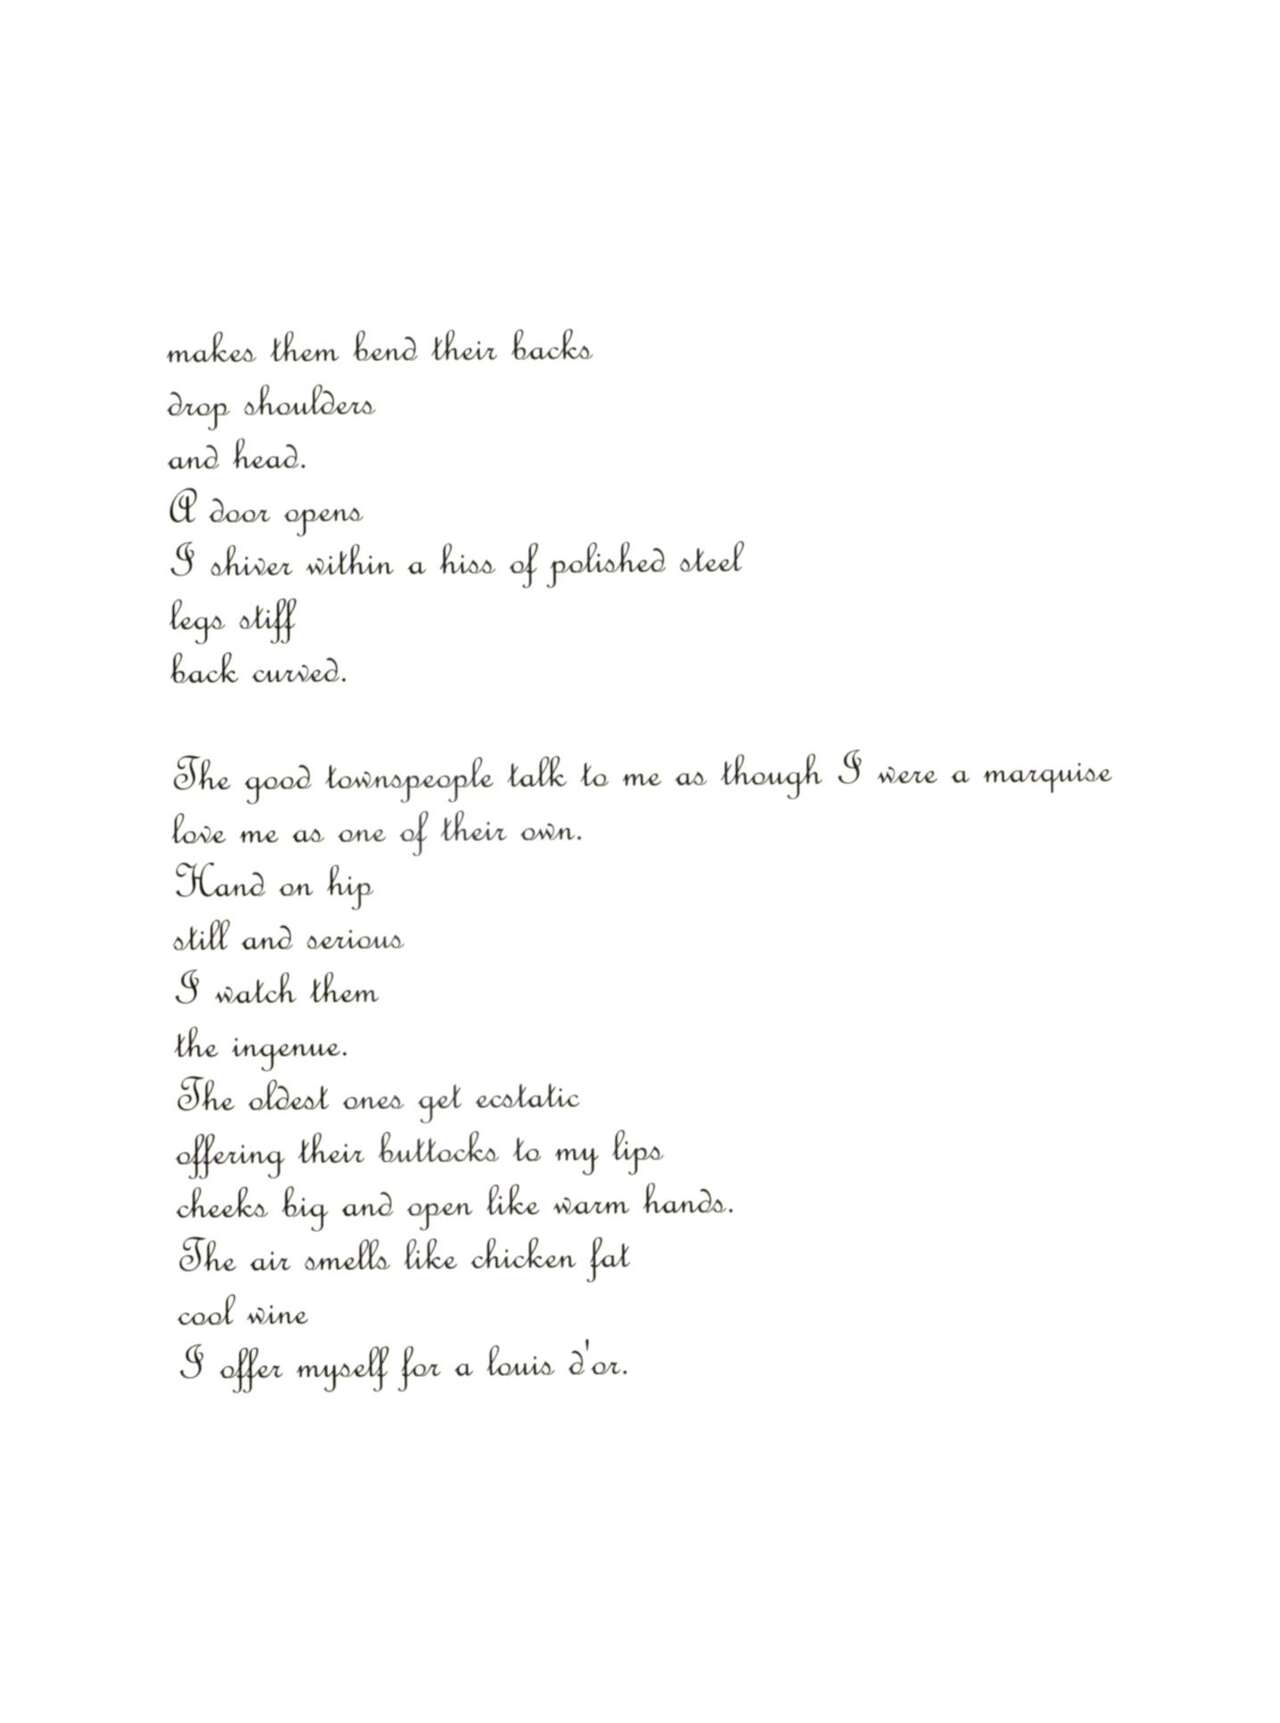 makes them bend their backs
drop shoulders
and head.
A door opens
I shiver within a hiss of polished steel
legs stiff
back curved.
The good townspeople talk to me as though I were a marquise
love me as one of their own.
Hand on hip
still and serious
I watch them
the ingenue.
The oldest ones get ecstatic
offering their buttocks to my lips
cheeks big and open like warm hands.
The air smells like chicken fat
cool wine
I offer myself for a louis d'or.